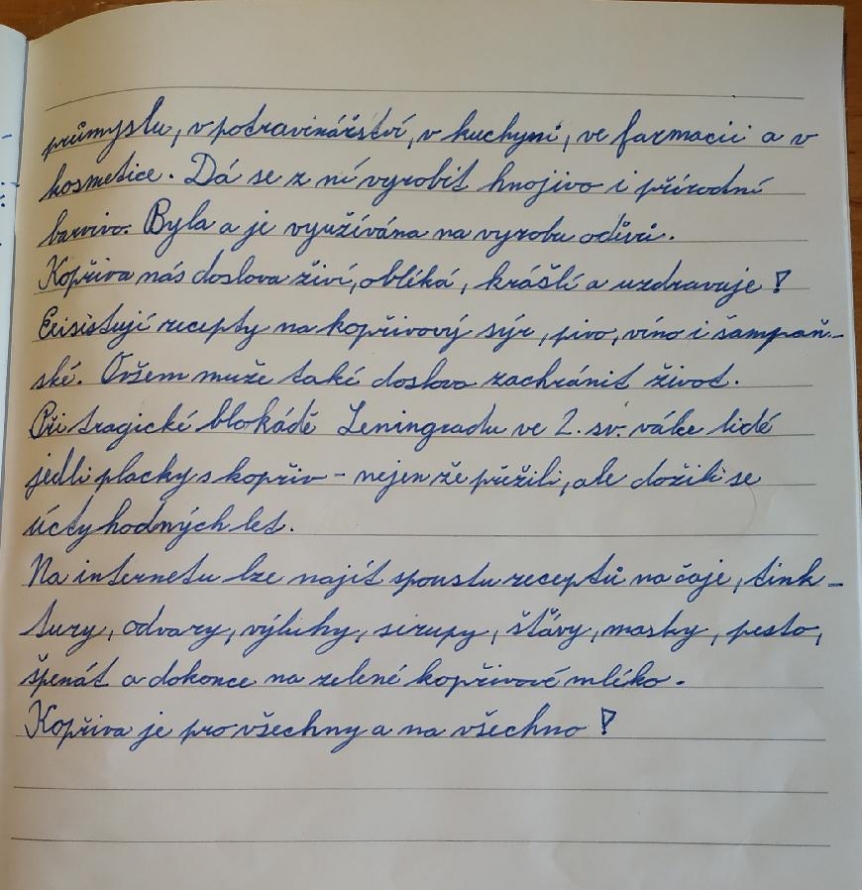 průmyslu, v potravinářství, v kuchyni, ve farmacii a v
kosmetice. Dá se z ní vyrobit hnojivo i přírodní
barvivo. Byla a je využívána na vyrobu oděvů.
Kopřiva nás doslova živí, obléká, krášlí a uzdravuje!
Exisistují recepty na kopřivový sýr, pivo, víno i šampaň-
ské. Ovšem muže také doslova zachránit život.
Při tragické blokádě Leningradu ve 2. sv. válce lidé
jedli placky s kopřiv - nejen že přežili, ale dožili se
úctyhodných let.
Na internetu lze najít spoustu receptů na čaje, tink-
tury, odvary, výluhy, sirupy, šťávy, masky, pesto,
špenát a dokonce na zelené kopřivové mléko.
Kopřiva je pro všechny a na všechno!